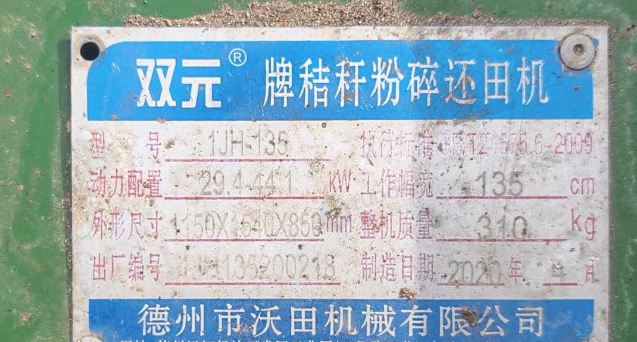 双元® 牌秸秆粉碎还田机
型号 1JH-135 执行标准 GB/T24675.6-2009
动力配置 29.4-44.1 kW 工作幅宽 135 cm
外形尺寸 1150X1540X850 mm 整机质量 310 kg
出厂编号 制造日期 2020 年 月
德州市沃田机械有限公司